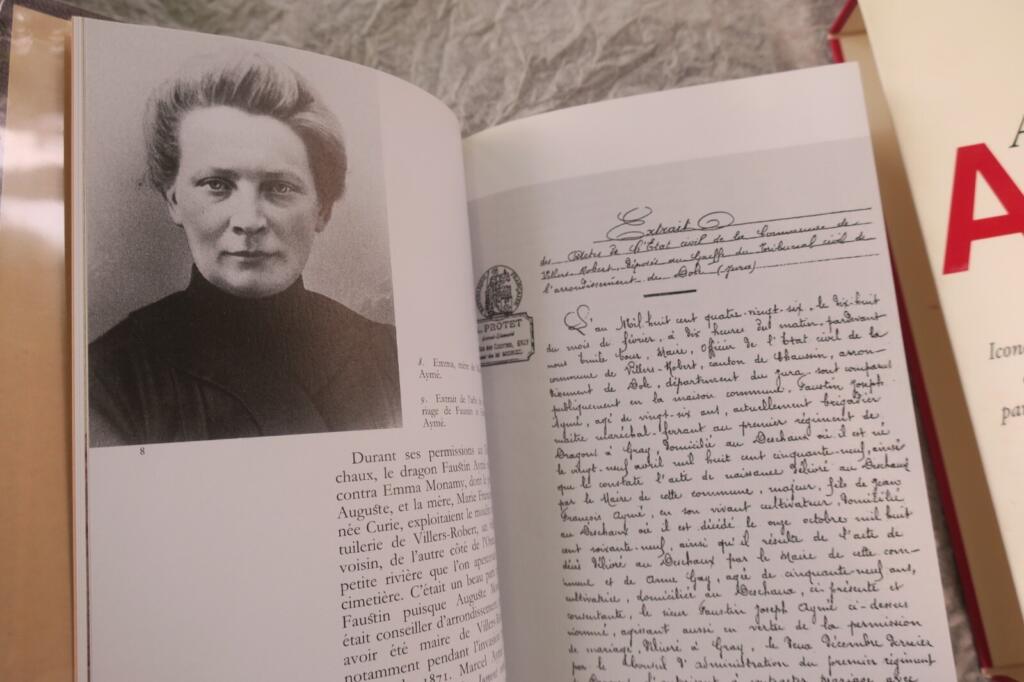 8. Emma, mère de
Aymé.
9. Extrait de l'acte de
riage de Faustin et
Aymé.
8
Durant ses permissions au
chaux, le dragon Faustin Aymé
contra Emma Monamy, dont le
Auguste, et la mère, Marie
née Curie, exploitaient le moulin
tuilerie de Villers-Robert, un
voisin, de l'autre côté de
petite rivière que l'on
cimetière. C'était un beau
Faustin puisque Auguste
était conseiller d'arrondissement
avoir été maire de Villers
notamment pendant
1871. Marcel
Extrait
des de l'Etat civil de la Commune de
Villers-Robert, déposés au Greffe du Tribunal civil de
l'arrondissement de Dole (Jura)
PROTET
L'an Mil huit cent quatre-vingt-six, le dix-huit
du mois de février, à dix heures du matin, pardevant
nous Maire, Officier de l'Etat civil de la
commune de Villers-Robert, canton de Chaussin, arron-
dissement de Dole, département du Jura, sont comparus
publiquement en la maison commune, Faustin Joseph
Aymé, agé de vingt-six ans, actuellement brigadier
maître maréchal-ferrant au premier régiment de
Dragons à Gray, domicilié au Deschaux où il est né
le vingt-neuf avril mil huit cent cinquante-neuf, ainsi
que le constate l'acte de naissance délivré au Deschaux
par le Maire de cette commune, majeur, fils de Jean
François Aymé, en son vivant cultivateur, domicilié
au Deschaux où il est décédé le onze octobre mil huit
cent soixante-neuf, ainsi qu'il résulte de l'acte de
décès délivré au Deschaux par le Maire de cette com-
mune et de Anne Gay, agée de cinquante-neuf ans,
cultivatrice, domiciliée au Deschaux, ci-présente et
consentante, le sieur Faustin Joseph Aymé ci-dessus
nommé, agissant aussi en vertu de la permission
de mariage, délivré à Gray, le deux Décembre dernier
par le Conseil d'administration du premier régiment
A
A
Icon
par